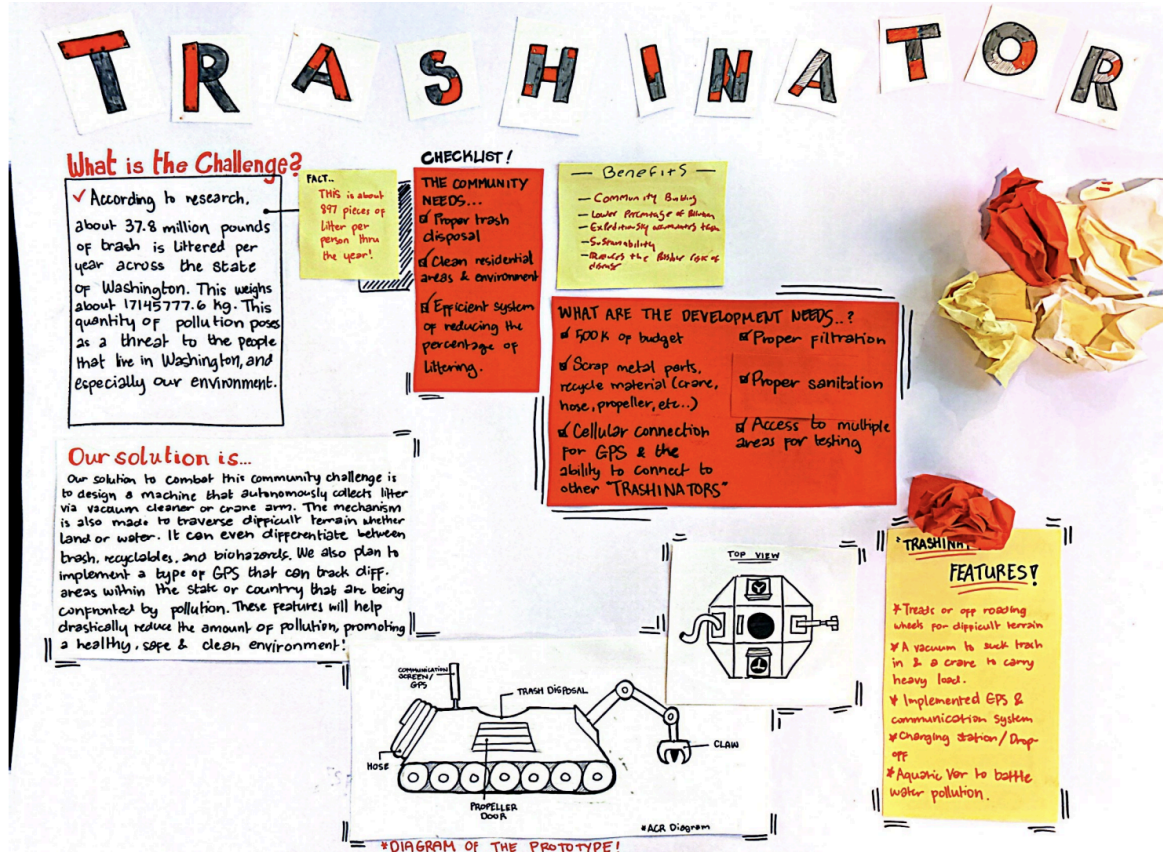 TRASHINATOR
What is the Challenge?
✓ According to research,
about 37.8 million pounds
of trash is littered per
year across the state
of Washington. This weighs
about 17145777.6 kg. This
quantity of pollution poses
as a threat to the people
that live in Washington, and
especially our environment.
FACT..
THIS is about
897 pieces of
litter per
person thru
the year!
CHECKLIST!
THE COMMUNITY
NEEDS...
☑ Proper trash
disposal
☑ Clean residential
areas & environment
☑ Efficient system
of reducing the
percentage of
littering.
— Benefits —
— Community Building
— Lower Percentage of Pollution
— Expeditiously
— Sustainability
— Reduces the risk of
disease
WHAT ARE THE DEVELOPMENT NEEDS..?
☑ 500K of budget
☑ Scrap metal parts,
recycle material (crane,
hose, propeller, etc..)
☑ Cellular connection
for GPS & the
ability to connect to
other "TRASHINATORS"
☑ Proper filtration
☑ Proper sanitation
☑ Access to multiple
areas for testing
Our solution is...
Our solution to combat this community challenge is
to design a machine that autonomously collects litter
via vacuum cleaner or crane arm. The mechanism
is also made to traverse difficult terrain whether
land or water. It can even differentiate between
trash, recyclables, and biohazards. We also plan to
implement a type of GPS that can track diff.
areas within the state or country that are being
confronted by pollution. These features will help
drastically reduce the amount of pollution, promoting
a healthy, safe & clean environment!
TOP VIEW
COMMUNICATION
SCREEN/
GPS
TRASH DISPOSAL
HOSE
PROPELLER
DOOR
CLAW
*ACR Diagram
*DIAGRAM OF THE PROTOTYPE!
"TRASHINA
FEATURES!
*Treads or off roading
wheels for difficult terrain
*A vacuum to suck trash
in & a crane to carry
heavy load.
*Implemented GPS &
communication system
*Charging station/Drop-
off
*Aquatic Ver to battle
water pollution.